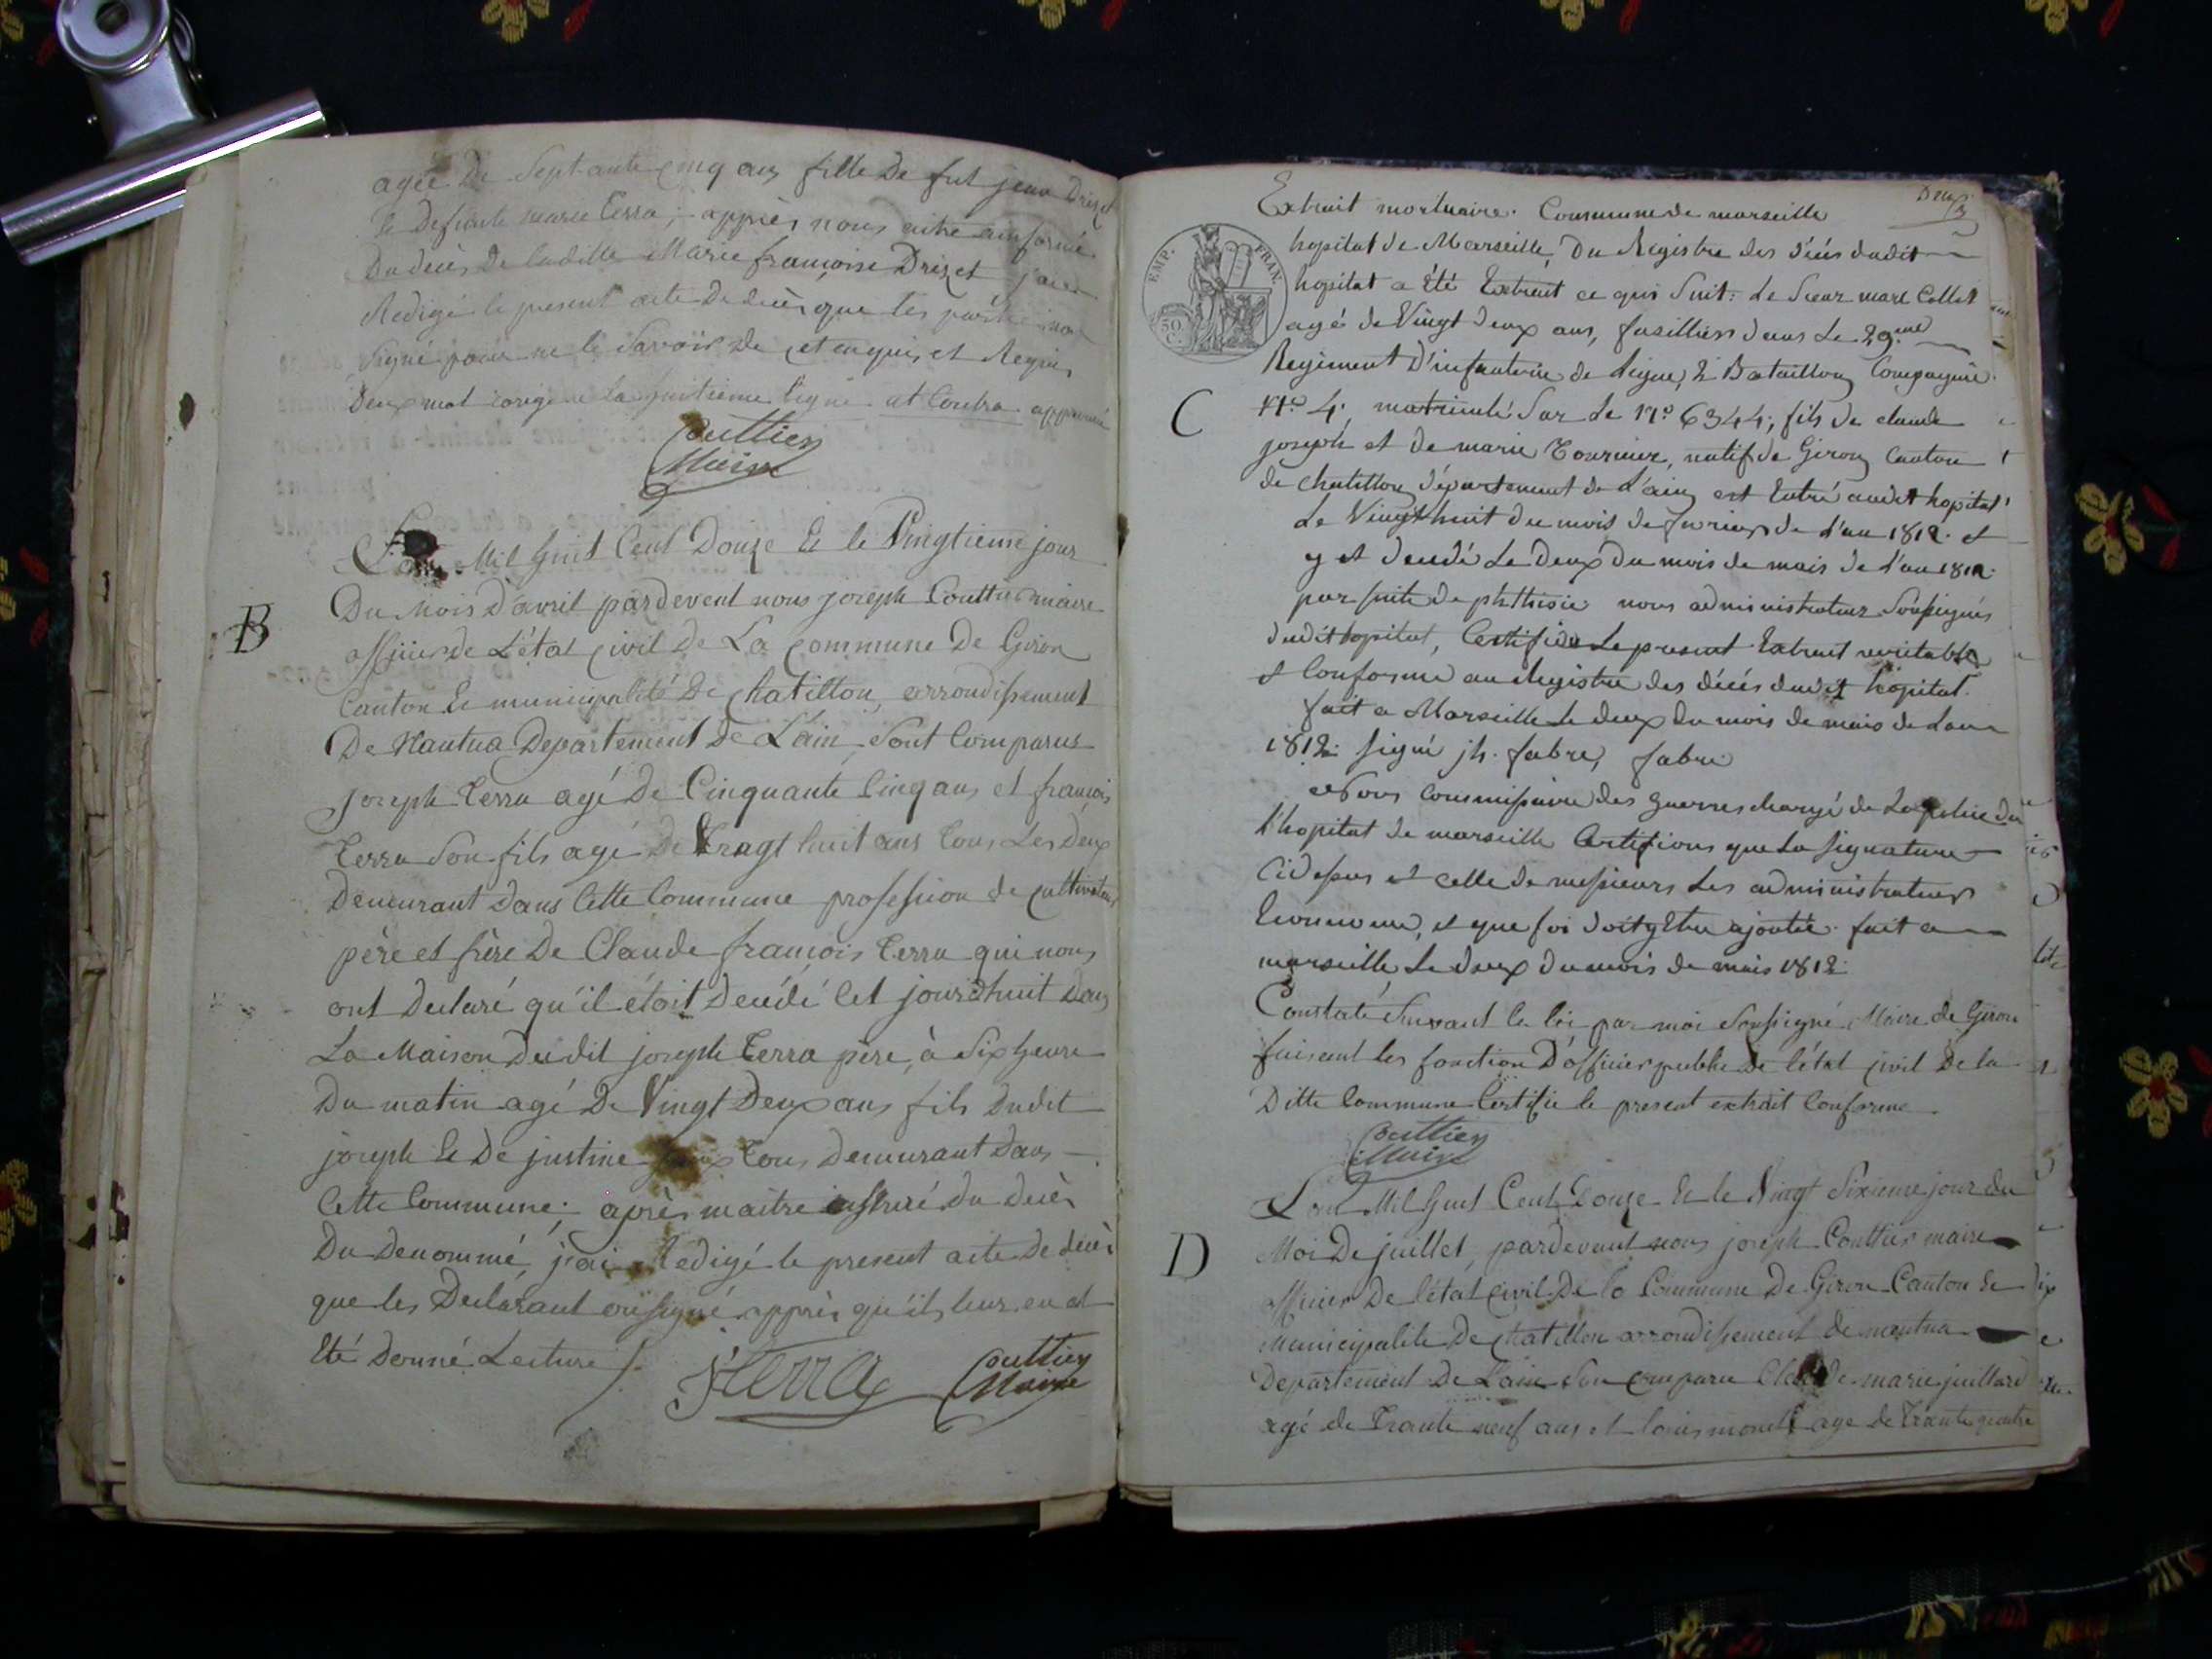 agée De Septante cinq ans fille De fut jean Drizet
le Defunte marie Terra; appres nous aitre ainformé
Du decès de ladille Marie françoise Drizet j'aie
Redigé le present acte De decè que les partie non
Signé pour ne le Savoir De cet enquis et Requis
Deux mot corigé la huitieme ligne at Contra approuvé
Couttier
Maire
B
L'an Mil huit Cent Douze Et le Vingtieme jour
Du Mois D'avril pardevent nous joseph Couttier maire
officier de L'état civil de La commune De Giron
Canton Et municipalité De Chatillon, arrondissement
De Nantua Departement De L'ain, sont Comparus
joseph Terra agé De Cinquante Cinq ans et françois
Terra Son fils agé De Vingt huit ans Tous Les deux
Demeurant Dans Cette Commune profession de Cultivateur
père et frère De Claude françois Terra qui nous
ont Declaré qu'il étoit Decédé Cet jourdhuit Dans
La Maison Dudit joseph Terra père, à Six heure
Du matin agé De Vingt Deux ans fils Dudit
joseph Et De justine Tous Demeurant Dans
Cette Commune; après maitre assuré du decè
Du Denommé, j'ai Redigé le present acte De decè
que les Declarant onsigné apprès qu'il leur en at
Eté Donné Lecture
J Terra Couttier
Maire
Deux
Extrait mortuaire. Commune de marseille
EMP. FRAN.
50 C.
hopital de Marseille, Du Registre des décés dudit
hopital a Eté Extrait ce qui Suit: Le Sieur marc Collet
agé de Vingt deux ans, fusillier dans Le 29.eme
Regiment D'infanterie de ligne, 2 Bataillon Compagnie
C
N.o 4, matriculé Sur Le N.o 6344; fils de claude
joseph et de marie Tournier, natif de Giron Canton
de chatillon département de L'ain est Entré audit hopital
Le Vingt huit du mois de fevrier de l'an 1812. et
y et decédé Le Deux Du mois de mars de l'an 1812.
par suite de phthisie nous administrateur Soussignés
dudit hopital, Certifié Le present Extrait veritable
et Conforme au Registre des décés dudit hopital.
fait a Marseille Le deux du mois de mars de Lan
1812. signé jh. fabre, fabre
Nous commissaire des guerres chargé de La police du
l'hopital de marseille Certifions que La signature
Cidessus et celle de messieurs Les administrateurs
Econome, et que foi doity Etre ajoutée. fait a
marseille Le deux du mois de mars 1812.
Constaté Suivant la loi par moi Soussigné Maire de Giron
faisant les fonction D'officier public De l'état civil De la
Ditte Commune Certifie le present extrait Conforme
Couttier
Maire
D
L'an Mil huit Cent Douze Et le Vingt Sixieme jour du
Moi De juillet, pardevant nous joseph Couttier maire
officier De l'état civil De la Commune De Giron Canton Et
municipalité De Chatillon arrondissement de nantua
Departement De L'ain Son comparu Claude marie juillard
agé de Trante neuf ans et louis monet age de Trante quatre